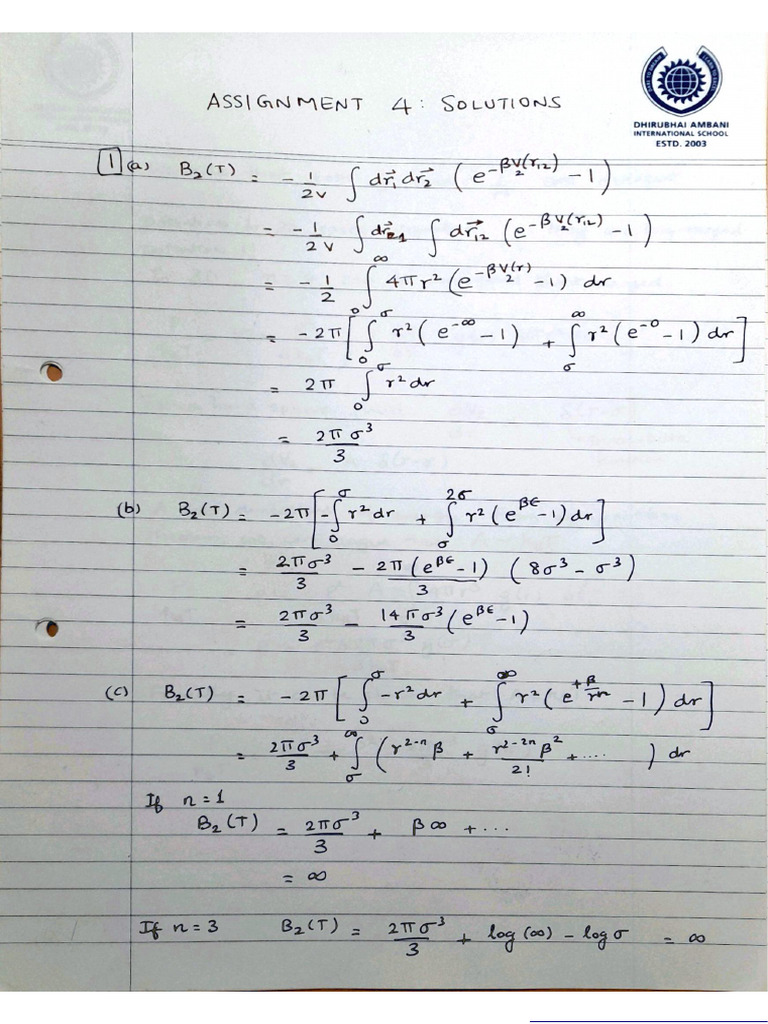 ASSIGNMENT 4: SOLUTIONS
DHIRUBHAI AMBANI
INTERNATIONAL SCHOOL
ESTD. 2003
1 (a) B₂(T) = -1/2v ∫ dr⃗₁ dr⃗₂ (e^(-βV₂(r₁₂)) - 1)
= -1/2v ∫ dr⃗₁ ∫ dr⃗₁₂ (e^(-βV₂(r₁₂)) - 1)
= -1/2 ∫₀^∞ 4πr² (e^(-βV₂(r)) - 1) dr
= -2π [ ∫₀^σ r² (e^(-∞) - 1) + ∫_σ^∞ r² (e^(-0) - 1) dr ]
= 2π ∫₀^σ r² dr
= 2πσ³/3
(b) B₂(T) = -2π [ -∫₀^σ r² dr + ∫_σ^2σ r² (e^(βϵ) - 1) dr ]
= 2πσ³/3 - 2π(e^(βϵ) - 1)/3 (8σ³ - σ³)
= 2πσ³/3 - 14πσ³/3 (e^(βϵ) - 1)
(c) B₂(T) = -2π [ ∫₀^σ -r² dr + ∫_σ^∞ r² (e^(+β/rⁿ) - 1) dr ]
= 2πσ³/3 + ∫_σ^∞ (r^(2-n) β + r^(2-2n) β²/2! + .... ) dr
If n = 1
B₂(T) = 2πσ³/3 + β∞ + ...
= ∞
If n = 3 B₂(T) = 2πσ³/3 + log (∞) - log σ = ∞